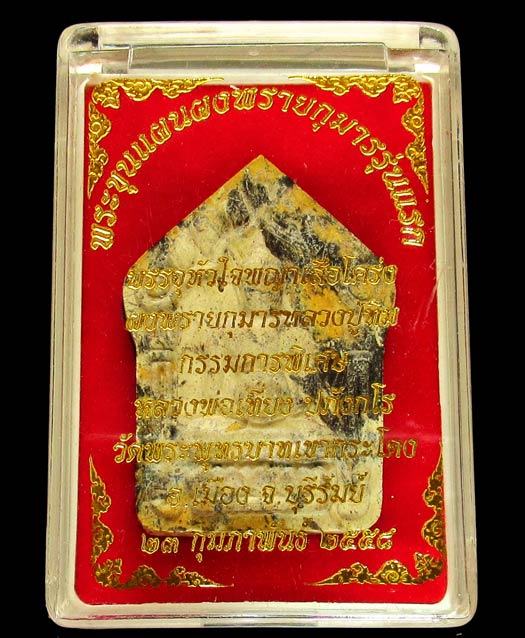 พระขุนแผนผงพรายกุมารรุ่นแรก
บรรจุหัวใจพญาเสือโคร่ง
ผงพรายกุมารหลวงปู่ทิม
กรรมการพิเศษ
หลวงพ่อเที่ยง ปภังกโร
วัดพระพุทธบาทเขากระโดง
อ.เมือง จ.บุรีรัมย์
๒๓ กุมภาพันธ์ ๒๕๕๘